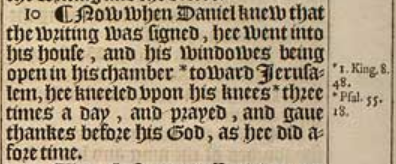 10 ¶ Now when Daniel knew that
the writing was signed, hee went into
his house, and his windowes being
open in his chamber * toward Jerusa-
lem, hee kneeled vpon his knees * three
times a day, and prayed, and gaue
thankes before his God, as hee did a-
fore time.
* 1. King. 8.
48.
* Psal. 55.
18.